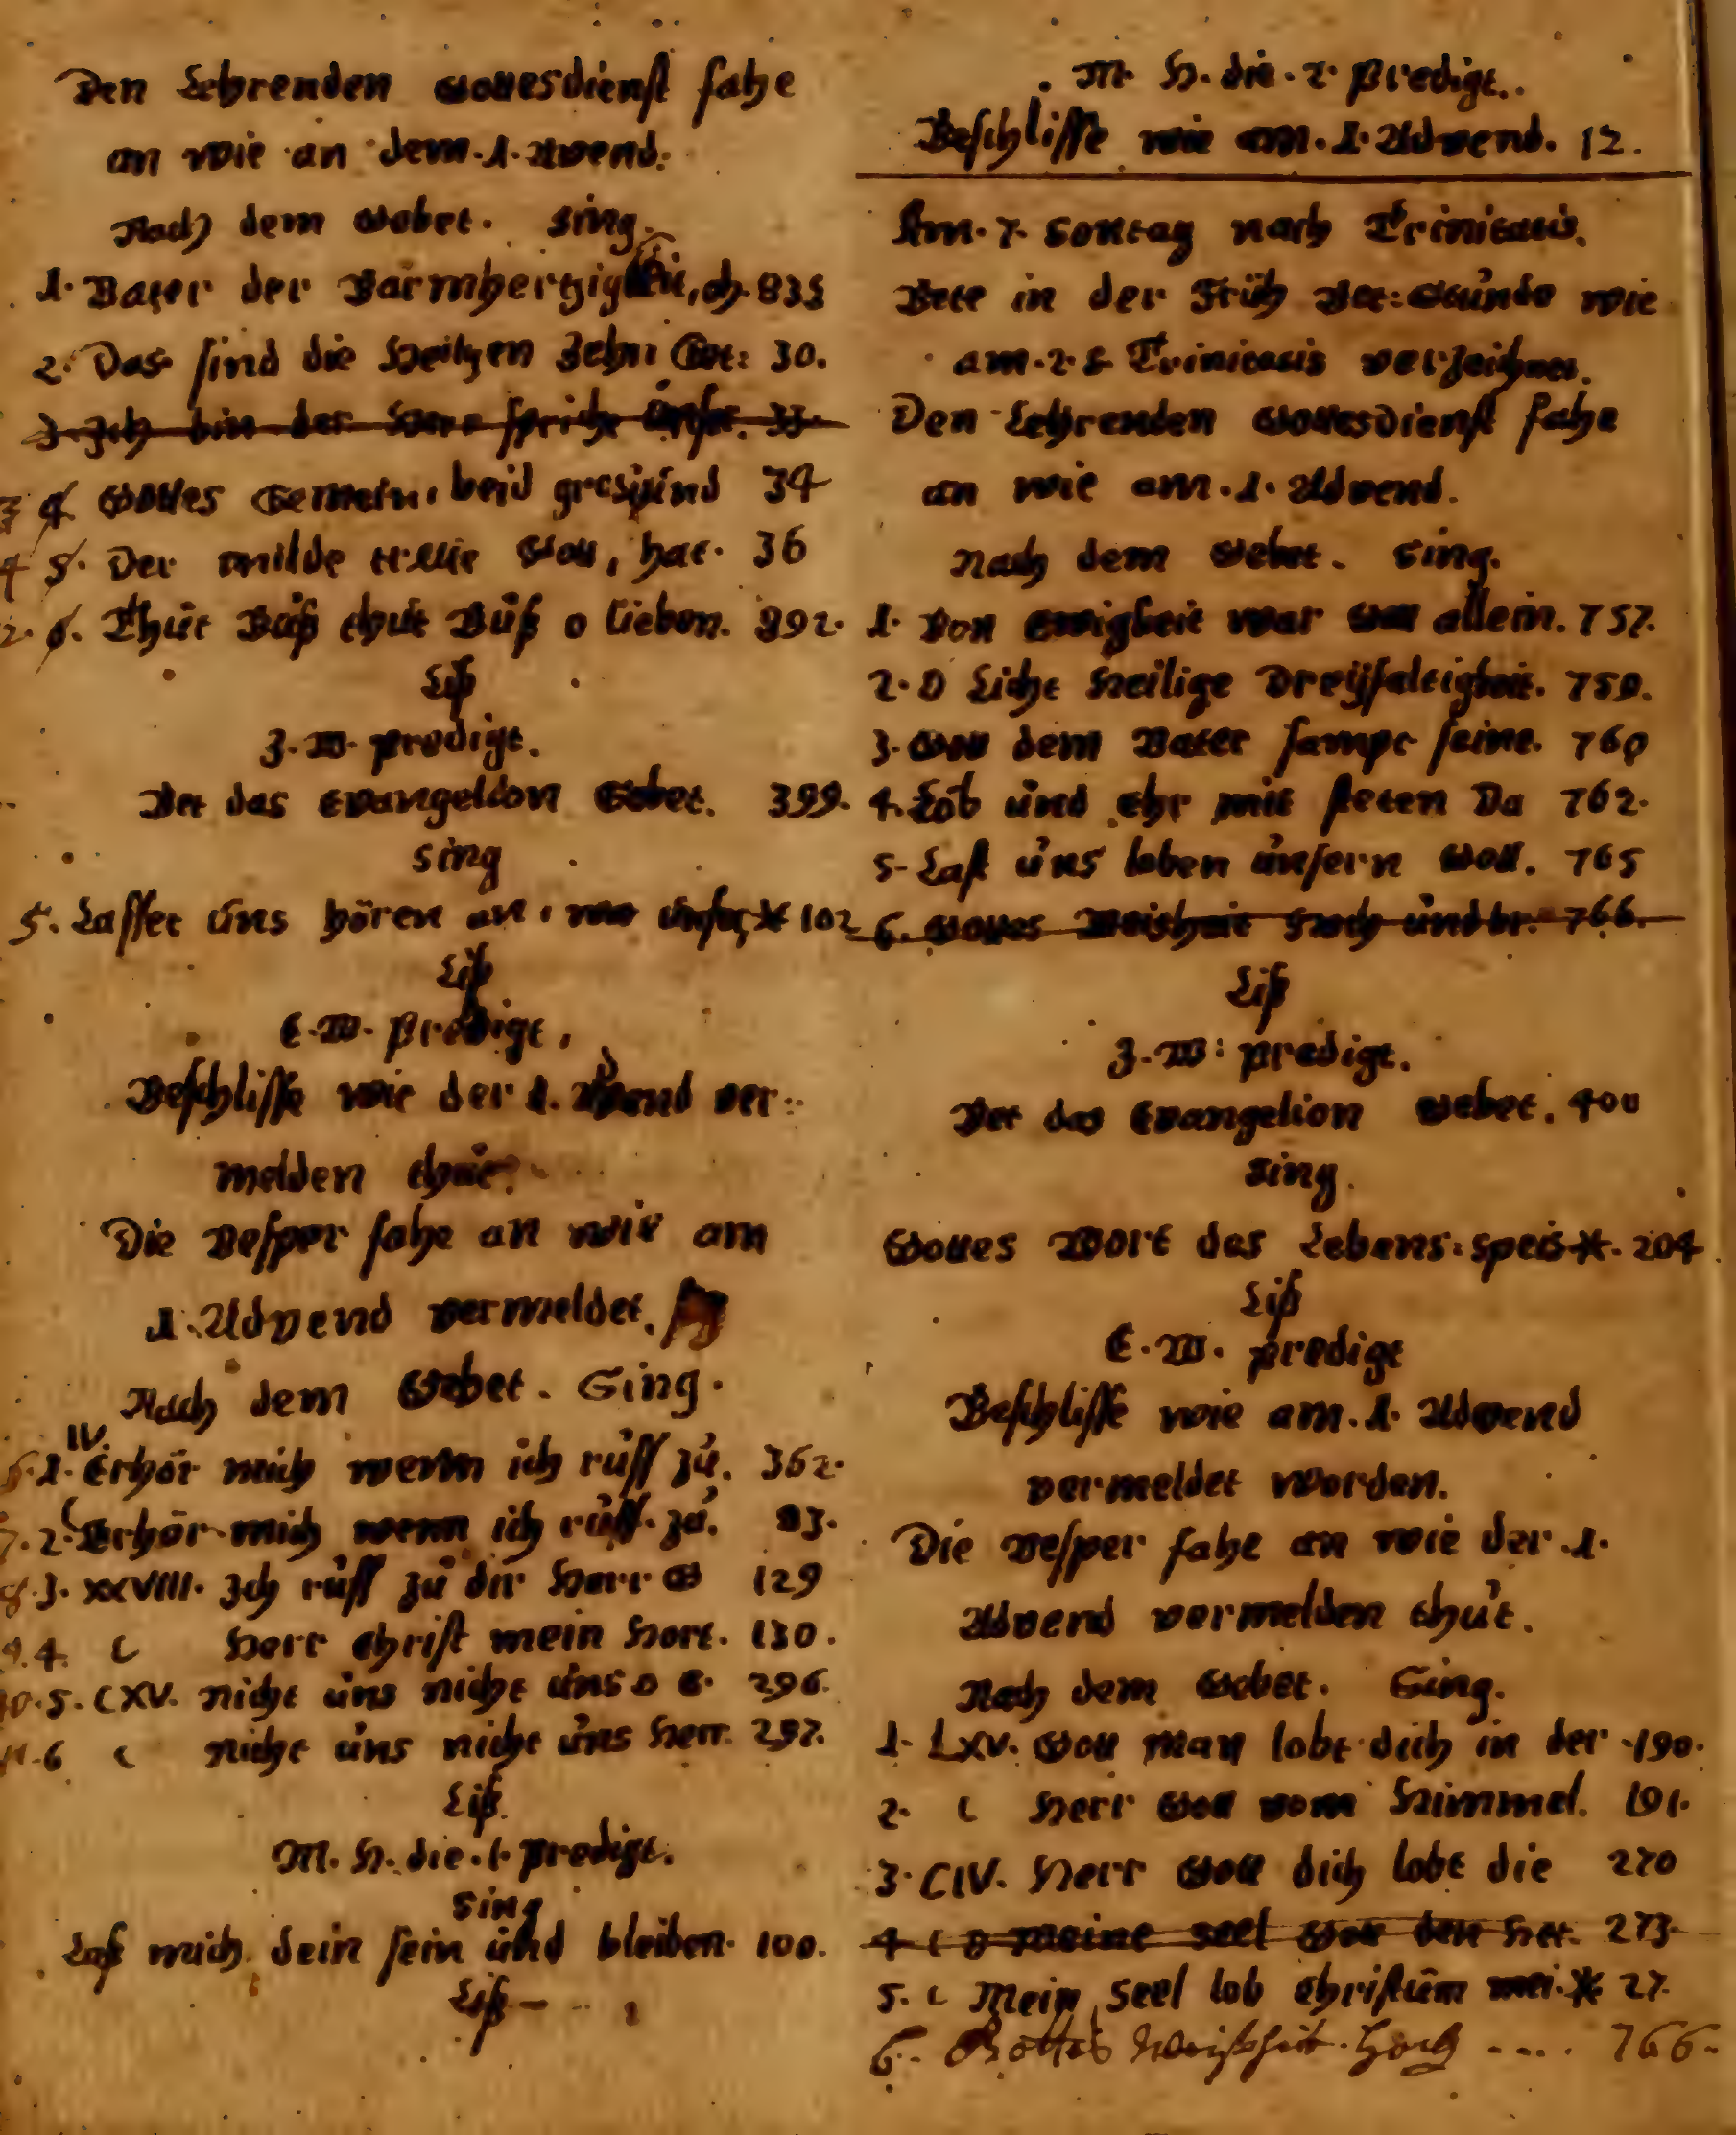 Den Lehrenden Gottesdienst fahe
an wie an dem. 1. Avend.
Nach dem Gebet. Sing.
1. Vater der Barmhertzigkeit, ch. 835
2. Das sind die Heilgen Zehn Get: 30.
3. Ich bin der Herr spricht unser. 33.
3 4 Gottes Gemein, beid gros und 34
4 5. Der milde treue Gott, hat. 36
2. 6. Thut Buß thut Buß o lieben. 892.
Liß
Z. W. predigt.
Bet das Evangelion Gebet. 399.
Sing
5. Lasset uns hören an, unser * 102
Liß
E. W. predigt.
Beschlisse wie der 1. Advend ver:
melden thut.
Die Vesper fahe an wie am
1. Advend vermeldet.
Nach dem Gebet. Sing.
6. 1. IV. Erhör mich wenn ich ruff zu. 362.
7. 2. C Erhör mich wenn ich ruff zu. 83.
8. 3. XXVIII. Ich ruff zu dir Herr G 129
9. 4. C Herr Christ mein Hort. 130.
10. 5. CXV. nicht uns nicht uns o H. 296.
11. 6 C nicht uns nicht uns Herr. 297.
Liß.
M. H. die. 1. predigt.
Sing
Laß mich dein sein und bleiben. 100.
Liß
M. H. die. 2. predigt.
Beschlisse wie am. 1. Advend. 12.
Am. 7. Sontag nach Trinitatis.
Bete in der Früh Bet: Stunde wie
am. 2. S. Trinitatis verzeichnet.
Den Lehrenden Gottesdienst fahe
an wie am. 1. Advend.
Nach dem Gebet. Sing.
1. Von ewigkeit war Gott allein. 757.
2. O Licht Heilige Dreyfaltigkeit. 759.
3. Gott dem Vater sampt seine. 760
4. Lob und ehr mit steten Da 762.
5. Last uns loben unsern Gott. 765
6. Gottes Weisheit Hoch und br. 766.
Liß
Z. W: predigt.
Bet das Evangelion Gebet. 400
Sing.
Gottes Wort das Lebens: speis *. 204
Liß
E. W. predigt
Beschlisse wie am. 1. Advend
vermeldet worden.
Die Vesper fahe an wie der. 1.
Advend vermelden thut.
Nach dem Gebet. Sing.
1. LXV. Gott man lobt dich in der 190.
2. C Herr Gott vom Himmel. 191.
3. CIV. Herr Gott dich lobt die 270
4 C O Meine seel Gott den Her. 273.
5. C Mein seel lob Christum mei. * 27.
6. Gottes Weißheit. Hoch .... 766.